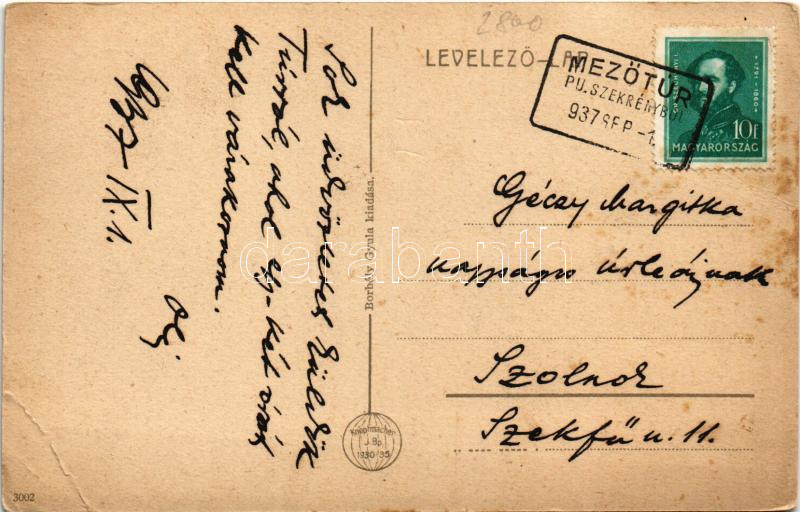 2800
LEVELEZŐ-LAP
MEZŐTÚR
PU. SZEKRÉNYBŐL
937 SEP -1
1791-1860
10f
MAGYARORSZÁG
Géczy Margitka
nagyságos úrleánynak
Szolnok
Szekfű u. 11.
Sok üdvözletet küldök
Túrról, ahol egy-két órát
kell várakoznom.
937 IX. 1.
Borbély Gyula kiadása.
Knopfmacher
J. Bp.
1930/35
3002
darabanth